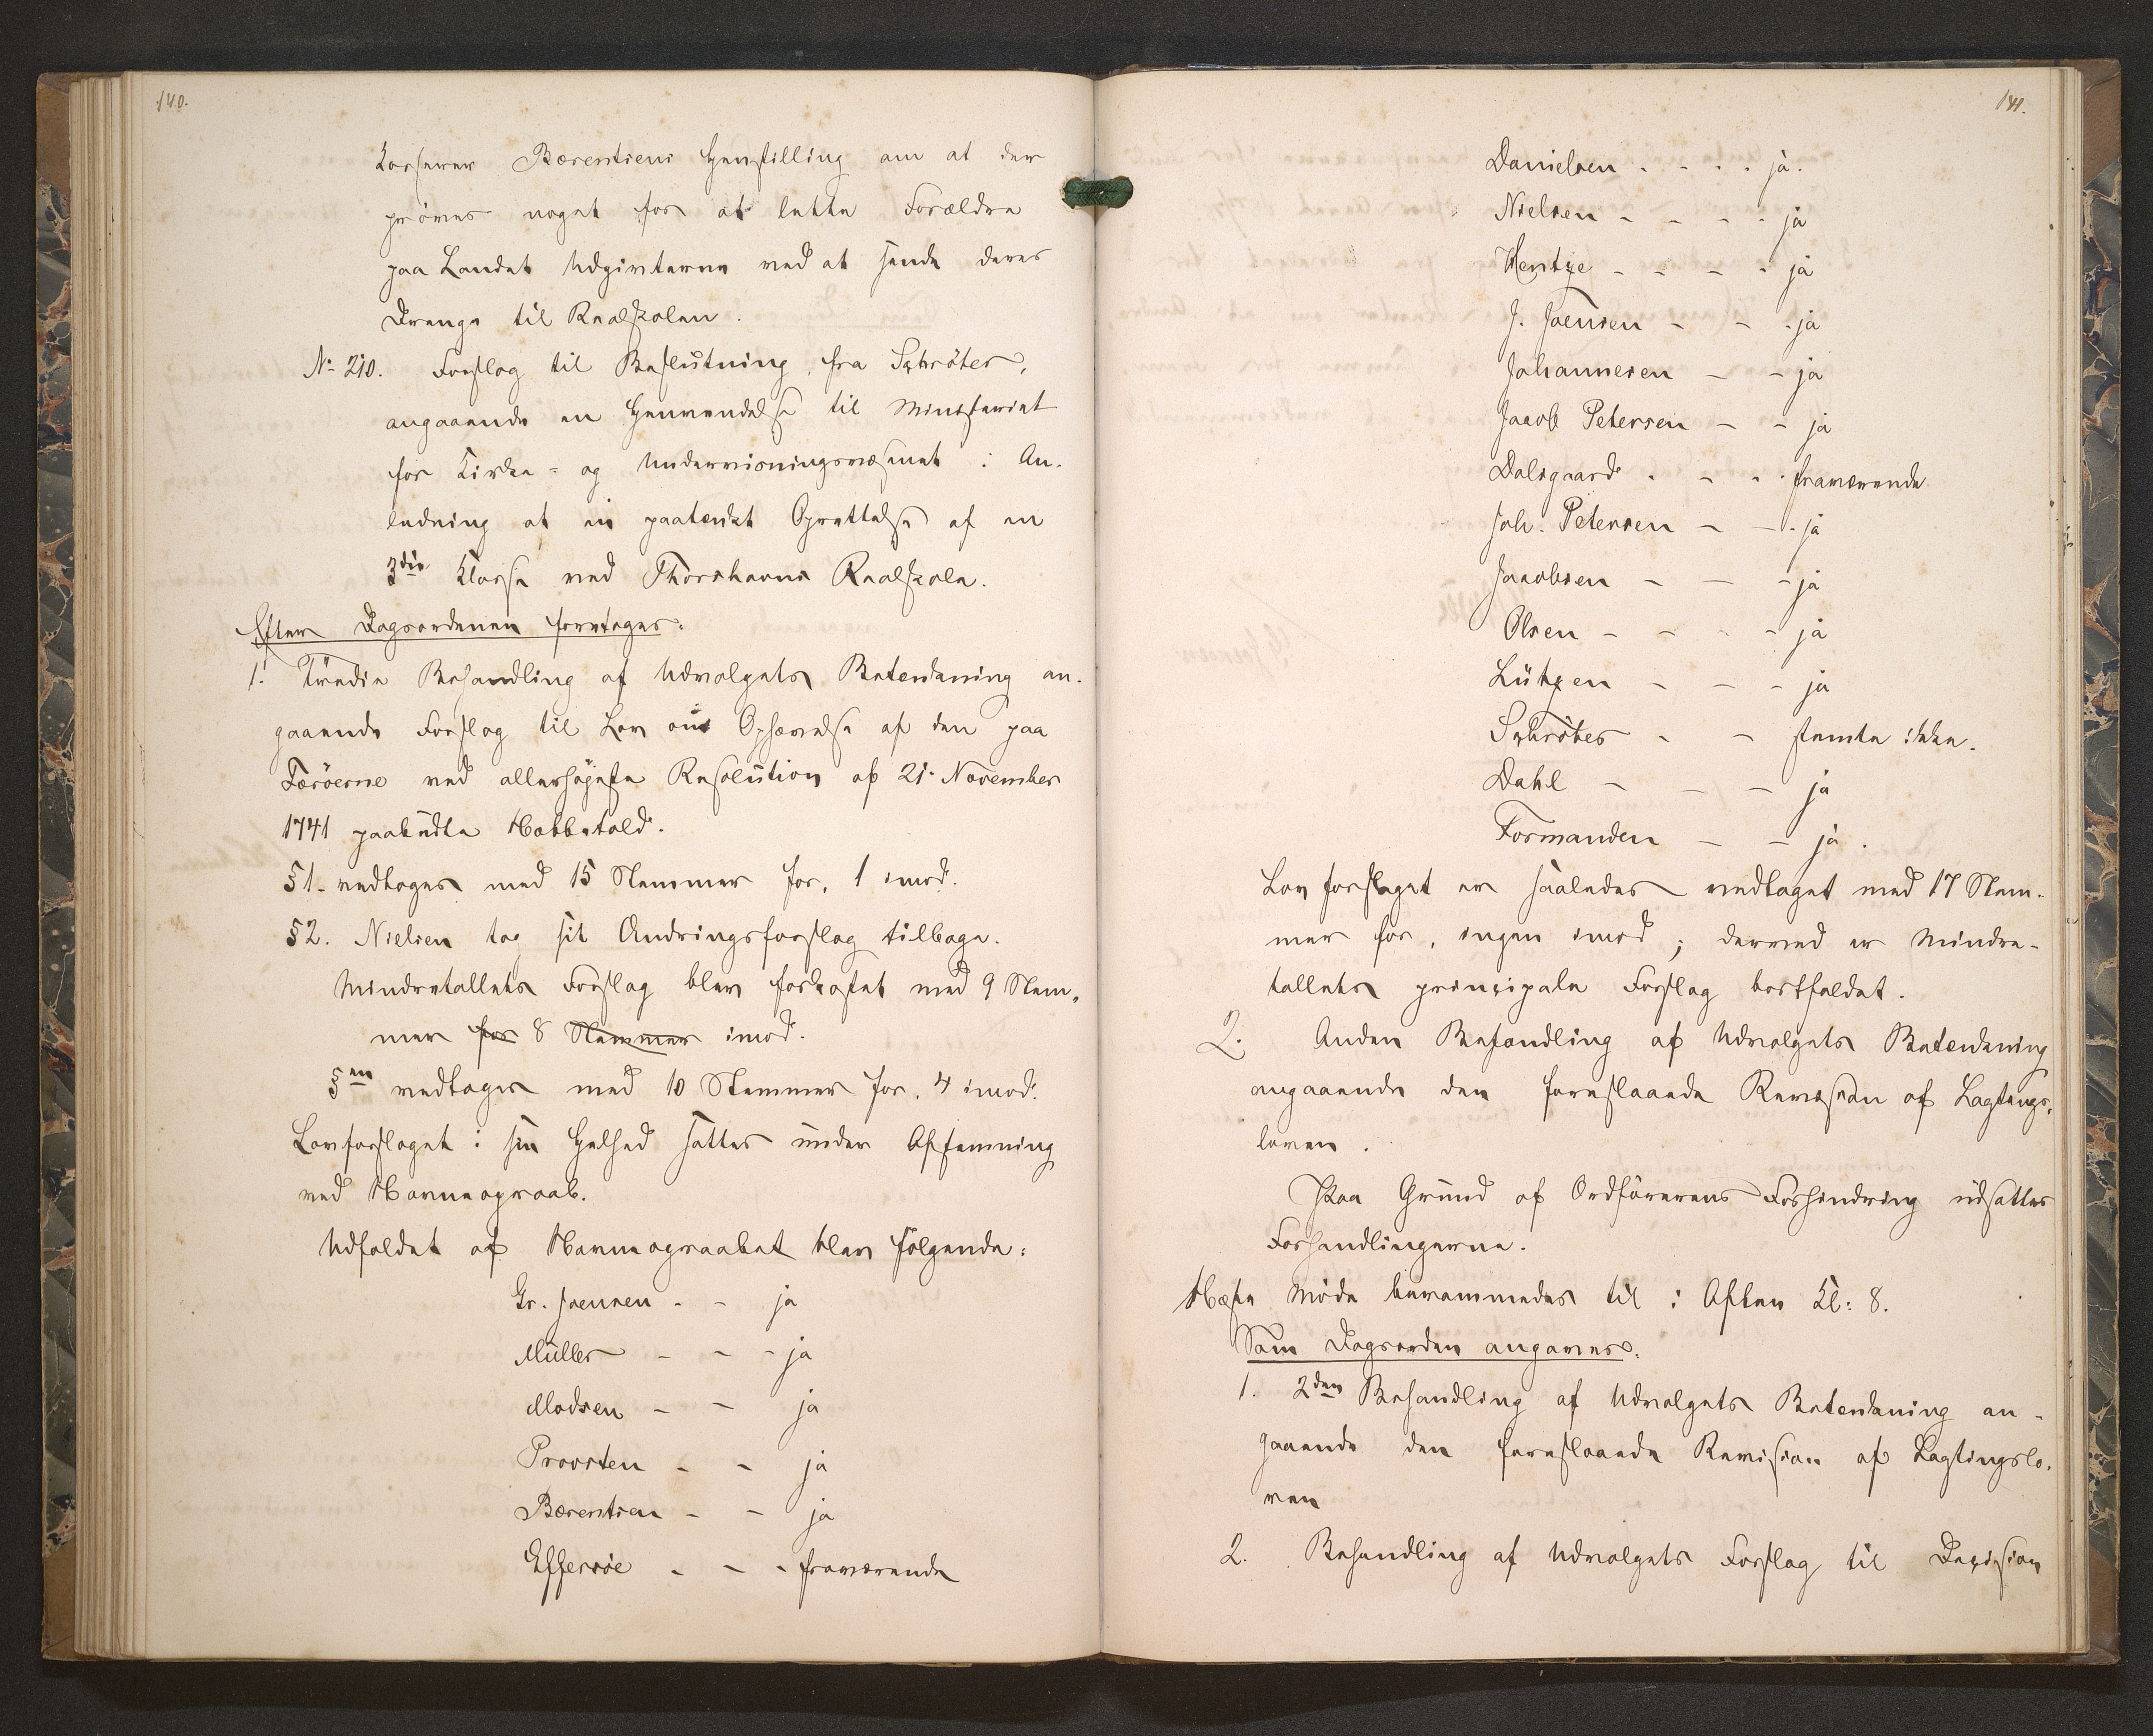 140.
Kasserer Bærentsens Henstilling om at der
prøves noget for at lette Forældre
paa Landet Udgivterne ved at sende deres
Drenge til Realskolen.
No 210. Forslag til Beslutning, fra Schröter,
angaaende en Henvendelse til Ministeriet
for Kirke- og Undervisningsvæsenet i An-
ledning af en paatænkt Oprettelse af en
3die Klasse ved Thorshavns Realskole.
Efter Dagsordenen foretoges:
1. Tredie Behandling af Udvalgets Betænkning an-
gaaende Forslag til Lov om Ophævelse af den paa
Færöerne ved allerhøjeste Resolution af 21. November
1741 paabudte Nebbetold.
§1. vedtoges med 15 Stemmer for, 1 imod.
§2. Nielsen tog sit Ændringsforslag tilbage.
Mindretallets Forslag blev forkastet med 9 Stem-
mer for 8 Stemmer imod.
§en vedtoges med 10 Stemmer for, 4 imod.
Lovforslaget i sin Helhed sattes under Afstemning
ved Navneopraab.
Udfaldet af Navneopraabet blev følgende:
Gr. Joensen - - ja
Müller - - - ja
Madsen - - ja
Provsten - - ja
Bærentsen - - ja
Effersöe - - - fraværende
141.
Danielsen - - - - ja.
Nielsen - - - - ja
Hentze - - - - ja
J. Joensen - - - ja
Johannesen - - ja
Jacob Petersen - - ja
Dalsgaard - - - fraværende
Joh. Petersen - - - ja
Jacobsen - - - ja
Olsen - - - - ja
Lützen - - - ja
Schröter - - stemte ikke.
Dahl - - - ja
Formanden - - ja.
Lovforslaget er saaledes vedtaget med 17 Stem-
mer for, ingen imod; derved er Mindre-
tallets principale Forslag bortfaldet.
2. Anden Behandling af Udvalgets Betænkning
angaaende den foreslaaede Revision af Lagtings-
loven.
Paa Grund af Ordførerens Forhindring udsattes
Forhandlingerne.
Næste Møde berammedes til i Aften Kl: 8.
Som Dagsorden angaves:
1. 2den Behandling af Udvalgets Betænkning an-
gaaende den foreslaaede Revision af Lagtingslo-
ven
2. Behandling af Udvalgets Forslag til Decision